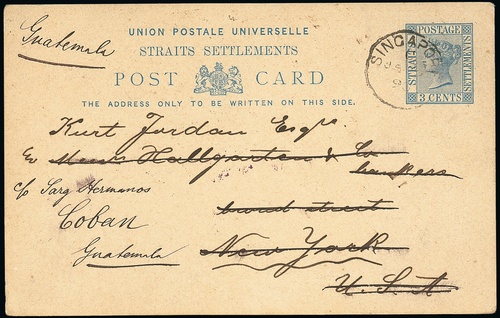 Guatemala
UNION POSTALE UNIVERSELLE
STRAITS SETTLEMENTS
POST CARD
THE ADDRESS ONLY TO BE WRITTEN ON THIS SIDE.
POSTAGE
STRAITS SETTLEMENTS
3 CENTS
SINGAPORE
Kurt Jordan Esqre
Messrs Hallgarten & Co
bankers
c/o Sarg Hermanos
broad street
Coban
New York
Guatemala
U.S.A